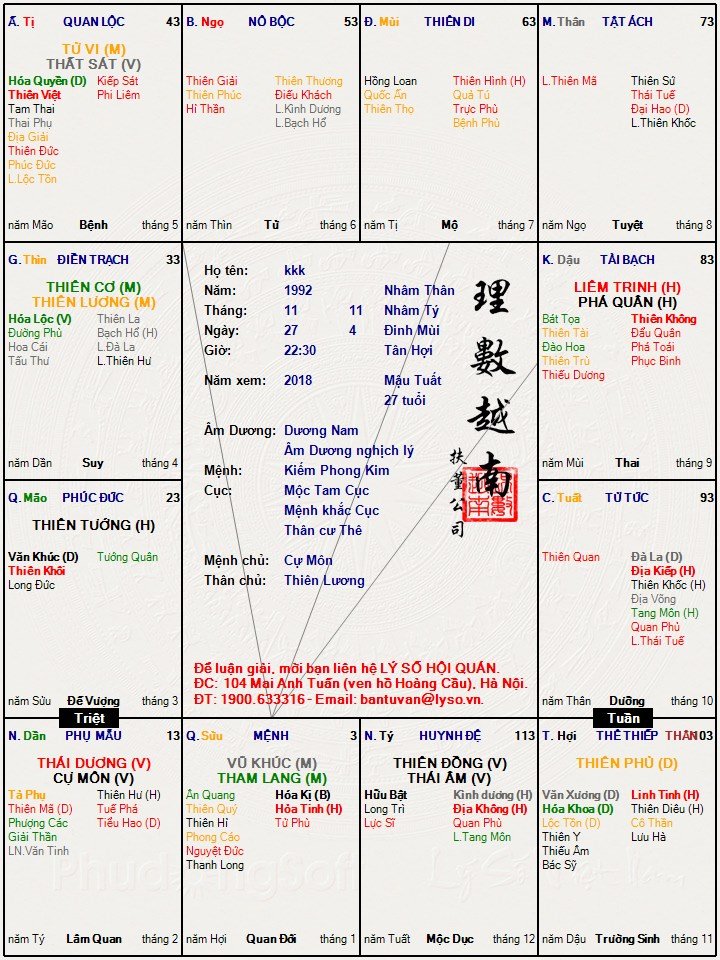 Ấ. Tị QUAN LỘC 43
TỬ VI (M)
THẤT SÁT (V)
Hóa Quyền (D) Kiếp Sát
Thiên Việt Phi Liêm
Tam Thai
Thai Phụ
Địa Giải
Thiên Đức
Phúc Đức
L.Lộc Tồn
năm Mão Bệnh tháng 5
B. Ngọ NÔ BỘC 53
Thiên Giải Thiên Thương
Thiên Phúc Điếu Khách
Hỉ Thần L.Kình Dương
L.Bạch Hổ
năm Thìn Tử tháng 6
Đ. Mùi THIÊN DI 63
Hồng Loan Thiên Hình (H)
Quốc Ấn Quả Tú
Thiên Thọ Trực Phù
Bệnh Phù
năm Tị Mộ tháng 7
M. Thân TẬT ÁCH 73
L.Thiên Mã Thiên Sứ
Thái Tuế
Đại Hao (D)
L.Thiên Khốc
năm Ngọ Tuyệt tháng 8
G. Thìn ĐIỀN TRẠCH 33
THIÊN CƠ (M)
THIÊN LƯƠNG (M)
Hóa Lộc (V) Thiên La
Đường Phù Bạch Hổ (H)
Hoa Cái L.Đà La
Tấu Thư L.Thiên Hư
năm Dần Suy tháng 4
Họ tên: kkk
Năm: 1992 Nhâm Thân
Tháng: 11 11 Nhâm Tý
Ngày: 27 4 Đinh Mùi
Giờ: 22:30 Tân Hợi
Năm xem: 2018 Mậu Tuất
27 tuổi
Âm Dương: Dương Nam
Âm Dương nghịch lý
Mệnh: Kiếm Phong Kim
Cục: Mộc Tam Cục
Mệnh khắc Cục
Thân cư Thê
Mệnh chủ: Cự Môn
Thân chủ: Thiên Lương
理數越南
扶董公司
Để luận giải, mời bạn liên hệ LÝ SỐ HỘI QUÁN.
ĐC: 104 Mai Anh Tuấn (ven hồ Hoàng Cầu), Hà Nội.
ĐT: 1900.633316 - Email: bantuvan@lyso.vn.
K. Dậu TÀI BẠCH 83
LIÊM TRINH (H)
PHÁ QUÂN (H)
Bát Tọa Thiên Không
Thiên Tài Đẩu Quân
Đào Hoa Phá Toái
Thiên Trù Phục Binh
Thiếu Dương
năm Mùi Thai tháng 9
Q. Mão PHÚC ĐỨC 23
THIÊN TƯỚNG (H)
Văn Khúc (D) Tướng Quân
Thiên Khôi
Long Đức
năm Sửu Đế Vượng tháng 3
C. Tuất TỬ TỨC 93
Thiên Quan Đà La (D)
Địa Kiếp (H)
Thiên Khốc (H)
Địa Võng
Tang Môn (H)
Quan Phủ
L.Thái Tuế
năm Thân Dưỡng tháng 10
Triệt
Tuần
N. Dần PHỤ MẪU 13
THÁI DƯƠNG (V)
CỰ MÔN (V)
Tả Phụ Thiên Hư (H)
Thiên Mã (D) Tuế Phá
Phượng Các Tiểu Hao (D)
Giải Thần
LN.Văn Tinh
năm Tý Lâm Quan tháng 2
Q. Sửu MỆNH 3
VŨ KHÚC (M)
THAM LANG (M)
Ân Quang Hóa Kị (B)
Thiên Quý Hỏa Tinh (H)
Thiên Hỉ Tử Phù
Phong Cáo
Nguyệt Đức
Thanh Long
năm Hợi Quan Đới tháng 1
N. Tý HUYNH ĐỆ 113
THIÊN ĐỒNG (V)
THÁI ÂM (V)
Hữu Bật Kình dương (H)
Long Trì Địa Không (H)
Lực Sĩ Quan Phù
L.Tang Môn
năm Tuất Mộc Dục tháng 12
T. Hợi THÊ THIẾP THÂN 103
THIÊN PHỦ (D)
Văn Xương (D) Linh Tinh (H)
Hóa Khoa (D) Thiên Diêu (H)
Lộc Tồn (D) Cô Thần
Thiên Y Lưu Hà
Thiếu Âm
Bác Sỹ
năm Dậu Trường Sinh tháng 11